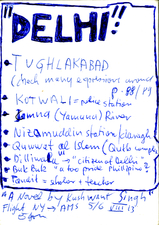 "DELHI"
TUGHLAKABAD
(check many expressions around
P. 88/89
KOTWALI = police station
Jamna (Yamuna) River
Nizamuddin station
Quwwat al Islam
Dilliwala = "citizen of Delhi"
Buk Buk "a too proud
Pandit = scholar + teacher
"A Novel by Kushwant Singh"
Flight NY → AMS 5/6 VIII 13